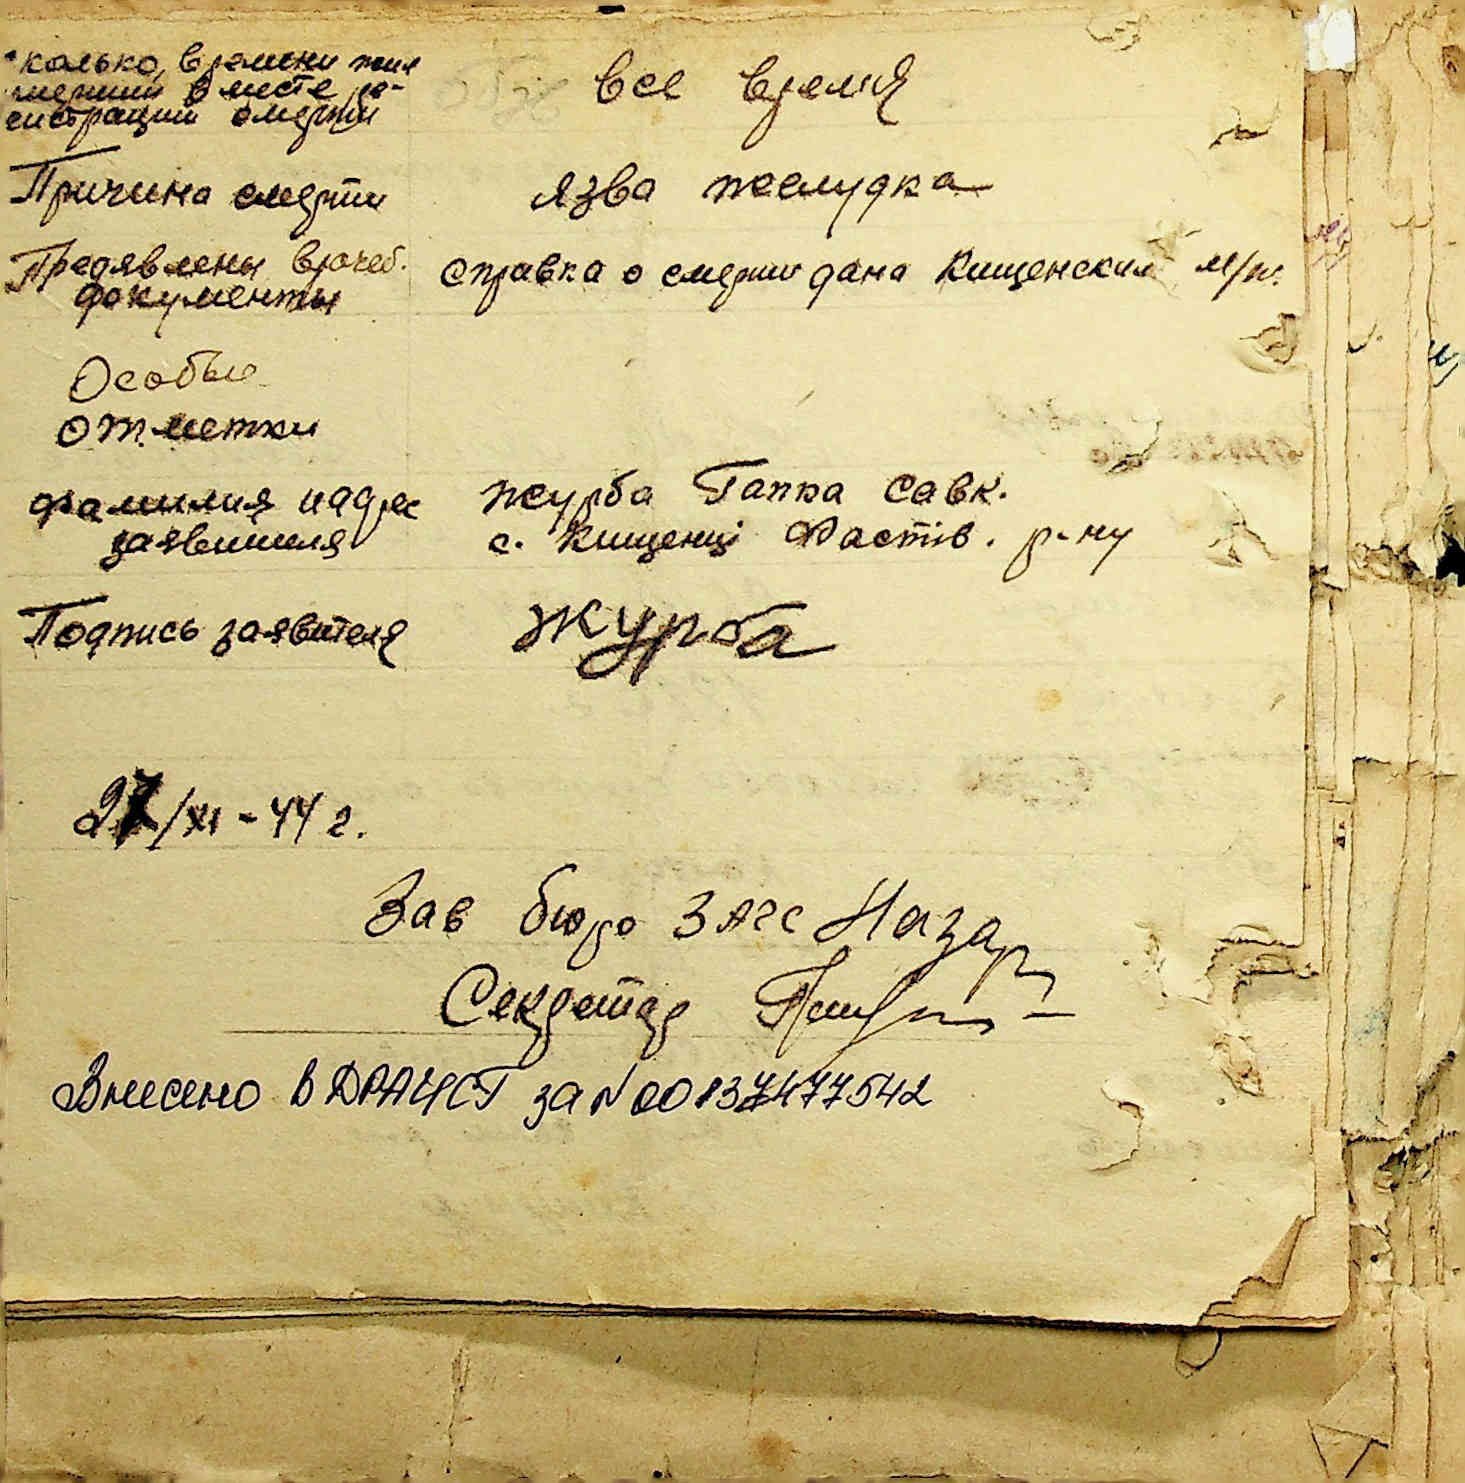 колько времени жил
умерший в месте ре-
гистрации смерти
все время
Причина смерти
язва желудка
Предявлены врачеб.
документы
справка о смерти дана Кищенским м/п.
Особые
отметки
фамилия и адрес
заявителя
Журба Гапка Савк.
с. Кищенці Фастів. р-ну
Подпись заявителя
Журба
27/XI - 44 г.
Зав бюро ЗАГС Назар
Секретар
Внесено в ДРАЦСГ за N 00137477542